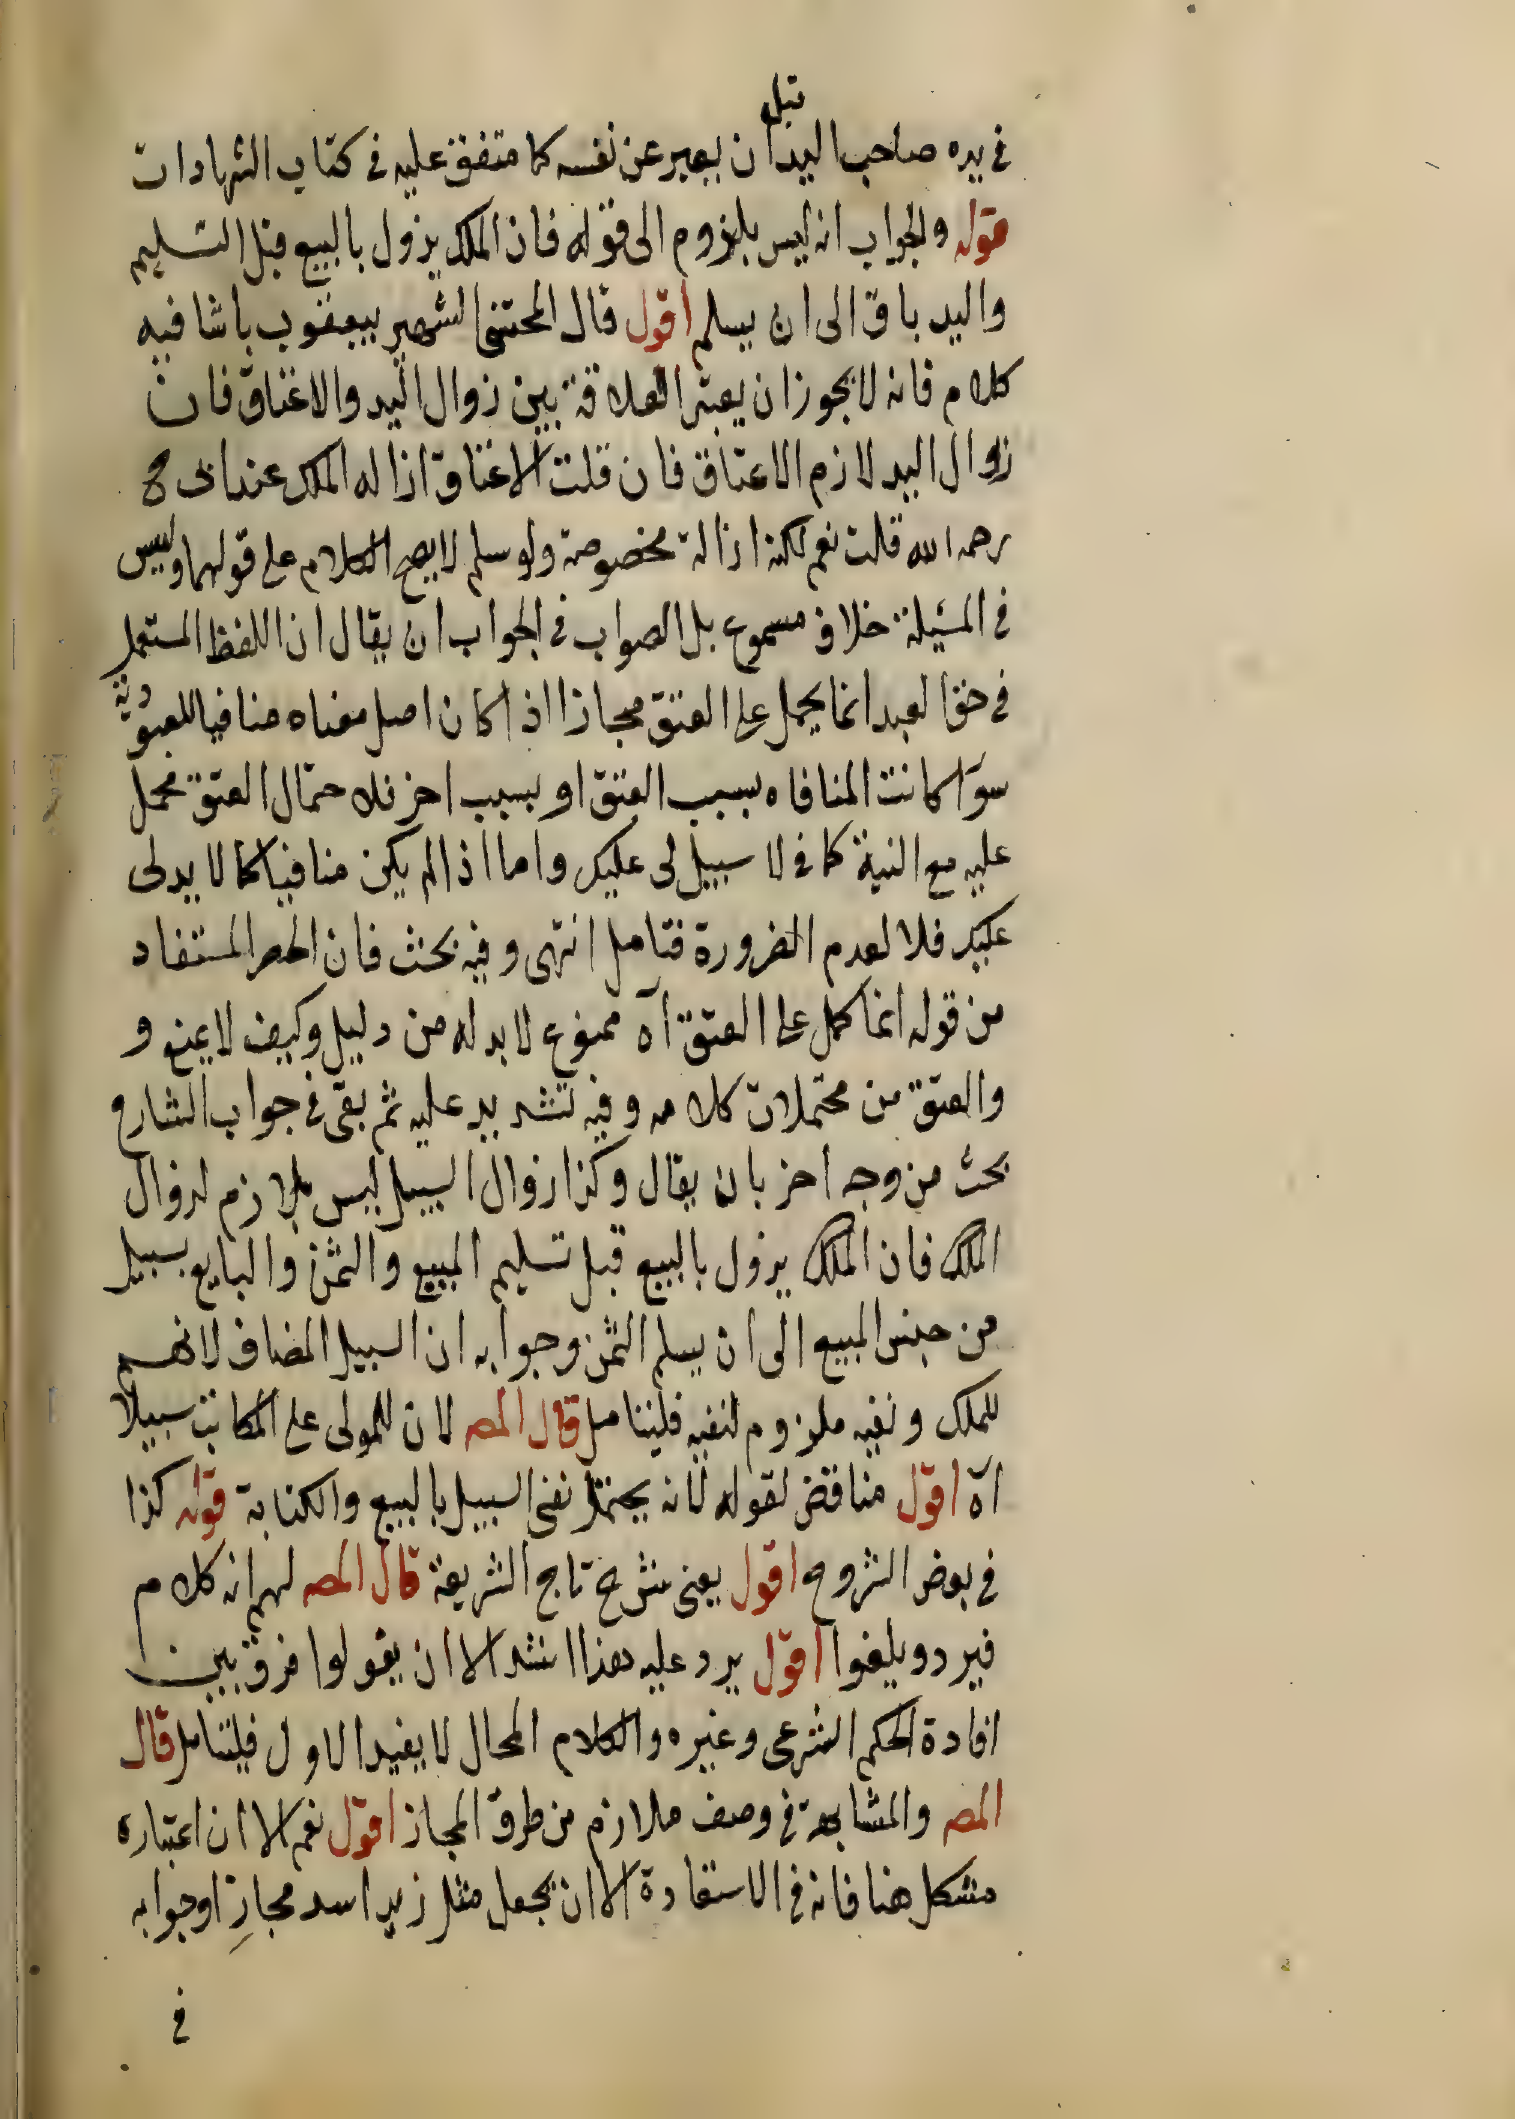 قبل
في يده صاحب اليد ان يعبر عن نفسه كما متفق عليه في كتاب الشهادات
قوله والجواب انه ليس بلزوم الى قوله فان الملك يزول بالبيع قبل التسليم
واليد باق الى ان يسلم اقول قال المحشى الشهير بيعقوب باشا فيه
كلام فانه لا يجوز ان يعتبر العلاقة بين زوال اليد والاعتاق فان
زوال اليد لازم الاعتاق فان قلت الاعتاق ازاله الملك عند ابى ح
رحمه الله قلت نعم لكنه ازالة مخصوصة ولو سلم لا يصح الكلام على قولهما وليس
في المسئلة خلاف مسموع بل الصواب في الجواب ان يقال ان اللفظ المستعمل
في حق العبد انما يحمل على العتق مجازا اذا كان اصل معناه منافيا للعبودية
سوآ كانت المنافاه بسبب العتق او بسبب اخر فلاحتمال العتق يحمل
عليه مع النية كما في لا سبيل لى عليك واما اذا لم يكن منافيا كما لا يد لى
عليك فلا لعدم الضرورة فتامل انتهى وفيه بحث فان الحصر المستفاد
من قوله انما يحمل على العتق آه ممنوع لا بد له من دليل وكيف لا يمنع و
والعتق من محتملات كلامه وفيه تشديد عليه ثم بقى في جواب الشارح
بحث من وجه اخر بان يقال وكذا زوال السبيل ليس بلازم لزوال
الملك فان الملك يزول بالبيع قبل تسليم المبيع والثمن والبايع بسبيل
من حبس المبيع الى ان يسلم الثمن وجوابه ان السبيل المضاف لانهم
للملك ونفيه ملزوم لنفيه فليتامل قال المص لان للمولى على المكاتب سبيلا
آه اقول مناقض لقوله لانه يحتمل نفى السبيل بالبيع والكتابة قوله كذا
في بعض الشروح اقول يعنى شرح تاج الشريعة قال المص لهم انه كلام
فيرد ويلغوا اقول يرد عليه هذا اشد الا ان يقولوا فرق بين
افادة الحكم الشرعى وغيره والكلام المحال لا يفيد الاول فليتامل قال
المص والمشابهة في وصف ملازم من طرق المجاز اقول نعم الا ان اعتباره
مشكل هنا فانه في الاستعادة الا ان يجعل مثل زيد اسد مجازا وجوابه
في